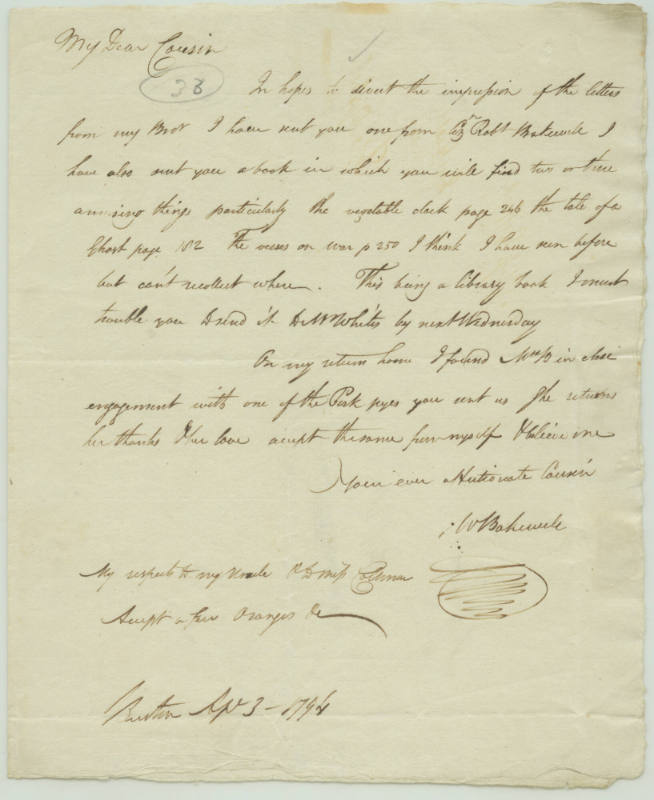 My Dear Cousin
33
In hopes to divert the impression of the letters
from my Bror I have sent you one from Czn Robt Bakewele I
have also sent you a book in which you will find two or three
amusing things particularly the vegetable clock page 246 the tale of a
Ghost page 182 The verses on war p 250 I think I have seen before
but can't recollect where. This being a library book I must
trouble you to send it to Mr White's by next Wednesday
On my return home I found Mrs B in close
engagement with one of the Pork pyes you sent us She returns
her thanks & her love accept the same from myself & believe me
Your ever affectionate Cousin
W Bakewele
My respects to my Uncle & to Miss
Accept a few Oranges &c
Burton Apl 3 - 1794